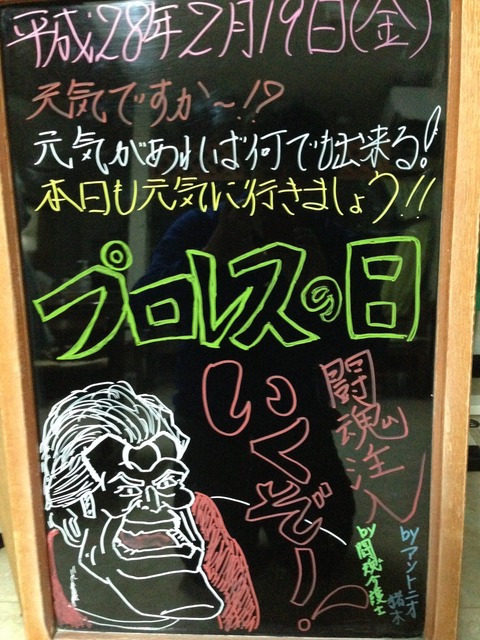 平成28年2月19日(金)
天気ですか〜!?
元気があれば何でも出来る!
本日も元気に行きましょう!!
プロレスの日
闘魂注入
いくぞー!
byアントニオ猪木
by闘魂介護士